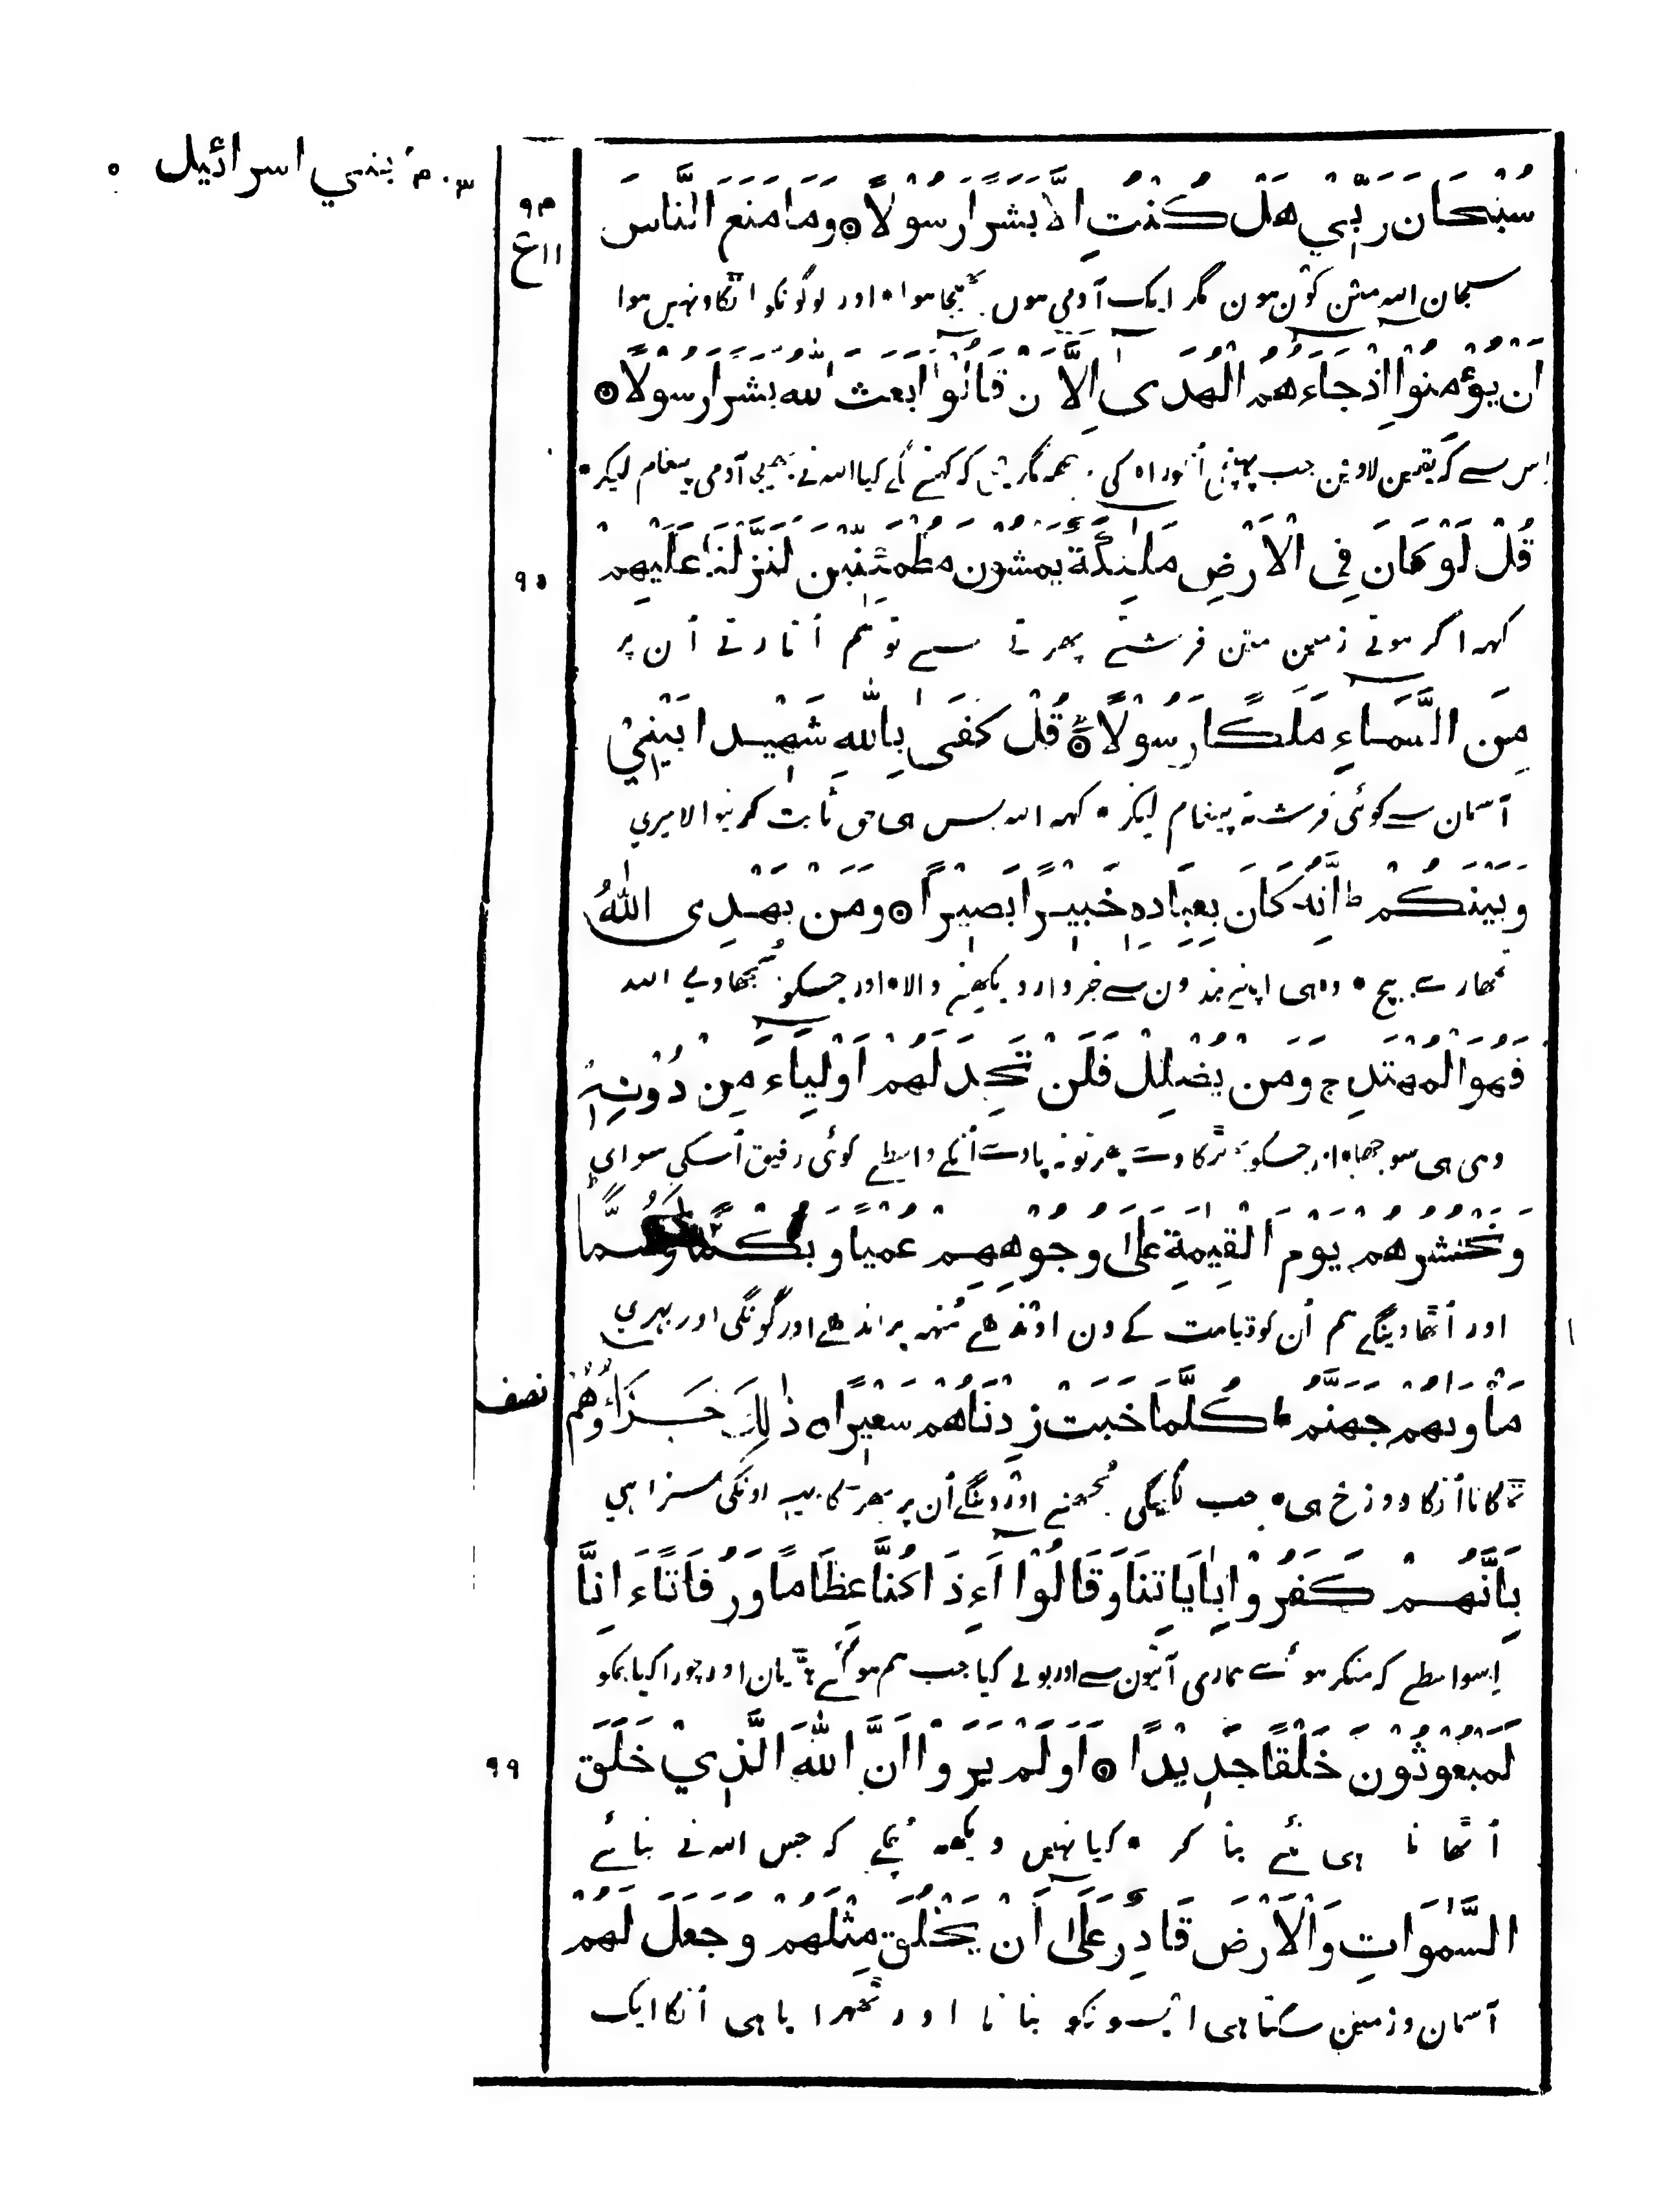 ۳۰۴ بني اسرائيل
۹۴
۱۱ع
سُبْحَانَ رَبِّيْ هَلْ كُنْتُ اِلَّا بَشَرًا رَسُوْلًا ۝ وَمَا مَنَعَ النَّاسَ
سبحان الله مین کون هون مگر ایک آدمی هوں بھیجا هوا • اور لوگونکو اٹکاو نہیں هوا
اَنْ يُؤْمِنُوْا اِذْ جَاءَهُمُ الْهُدٰى اِلَّا اَنْ قَالُوْا اَبَعَثَ اللهُ بَشَرًا رَسُوْلًا ۝
اِس سے کہ یقین لاوین جب پہنچی اُنکو راہ کی سوجھہ مگر یہی کہ کہنے لگے کیا الله نے بھیجا آدمی پیغام لیکر •
قُلْ لَوْ كَانَ فِى الْاَرْضِ مَلٰئِكَةٌ يَمْشُوْنَ مُطْمَئِنِّيْنَ لَنَزَّلْنَا عَلَيْهِمْ
۹۵
کہہ اگر هوتے زمین مین فرشتے پھرتے بستے تو هم اُتارتے اُن پر
مِنَ السَّمَاءِ مَلَكًا رَسُوْلًا ۝ قُلْ كَفٰى بِاللهِ شَهِيْدًا بَيْنِيْ
آسمان سے کوئی فرشتہ پیغام لیکر • کہہ الله بس هی حق ثابت کرنیوالا میری
وَبَيْنَكُمْ ط اِنَّهُ كَانَ بِعِبَادِهٖ خَبِيْرًا بَصِيْرًا ۝ وَمَنْ يَهْدِى اللهُ
تمهارے بیچ • وہ هی اپنے بندون سے خبردار دیکھنے والا • اور جسکو سُجھاوے الله
فَهُوَ الْمُهْتَدِ ج وَمَنْ يُضْلِلْ فَلَنْ تَجِدَ لَهُمْ اَوْلِيَاءَ مِنْ دُوْنِهٖ
وهی هی سوجھا • اور جسکو بھٹکاوے پھر تو نہ پاوے اُنکے واسطے کوئی رفیق اُسکی سوای
وَنَحْشُرُهُمْ يَوْمَ الْقِيٰمَةِ عَلٰى وُجُوْهِهِمْ عُمْيًا وَبُكْمًا وَصُمًّا
اور اُٹھاوینگے هم اُن کو قیامت کے دن اوندھے مُنہہ پر اندھے اور گونگی اور بہری
مَاْوٰىهُمْ جَهَنَّمُ ط كُلَّمَا خَبَتْ زِدْنَاهُمْ سَعِيْرًا ۝ ذٰلِكَ جَزَاؤُهُمْ
نصف
ٹھکانا اُنکا دوزخ هی • جب لگیگی بُجھنے اور دینگے اُن پر بھڑکا • یہہ اونکی سزا هی
بِاَنَّهُمْ كَفَرُوْا بِاٰيَاتِنَا وَقَالُوْا اَءِذَا كُنَّا عِظَامًا وَرُفَاتًا ءَ اِنَّا
اِسواسطے کہ منکر هوئے هماری آیتون سے اور بولے کیا جب هم هو گئے هڈیان اور چورا کیا همکو
لَمَبْعُوْثُوْنَ خَلْقًا جَدِيْدًا ۝ اَوَلَمْ يَرَوْا اَنَّ اللهَ الَّذِيْ خَلَقَ
۹۹
اُٹھانا هی نئے بنا کر • کیا نہیں دیکھہ چُکے کہ جس الله نے بنائے
السَّمٰوَاتِ وَالْاَرْضَ قَادِرٌ عَلٰى اَنْ يَخْلُقَ مِثْلَهُمْ وَجَعَلَ لَهُمْ
آسمان و زمین سکتا هی ایسونکو بنانا اور ٹھہرایا هی اُنکا ایک